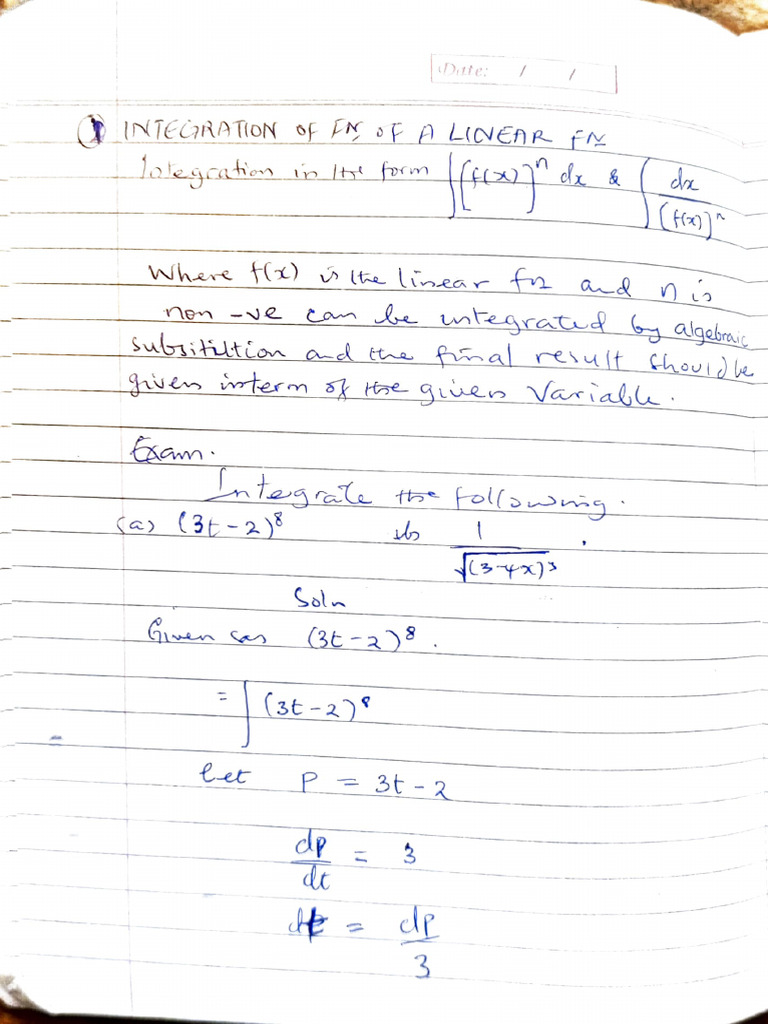 Date: / /
① INTEGRATION OF FN OF A LINEAR FN
Integration in the form ∫[f(x)]ⁿ dx & ∫ dx/[f(x)]ⁿ
Where f(x) is the linear fn and n is
non -ve can be integrated by algebraic
subsitiltion and the final result should be
given interm of the given Variable.
Exam.
Integrate the following.
(a) (3t-2)⁸ (b) 1/√(3-4x)³ .
Soln
Given (a) (3t-2)⁸.
= ∫(3t-2)⁸
=
let P = 3t-2
dp/dt = 3
dt = dp/3